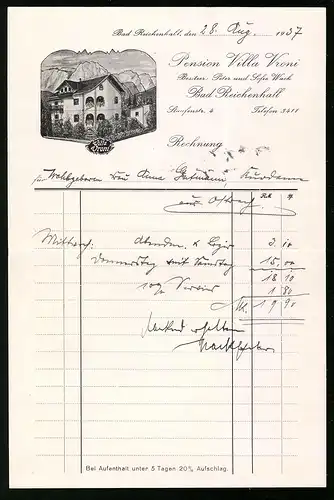 Bad Reichenhall, den 28. Aug. 1937
Pension Villa Vroni
Besitzer: Peter und Sofie Wach
Bad Reichenhall
Telefon 3411
Villa
Vroni
Rechnung
für Wohlgeboren Frau Anna
Mittwoch: Abendes. & Logis 3.10
Donnerstag mit Samstag 15.00
18 10
10% Service 1 80
Mk. 19 90
dankend erhalten
Bei Aufenthalt unter 5 Tagen 20% Aufschlag.